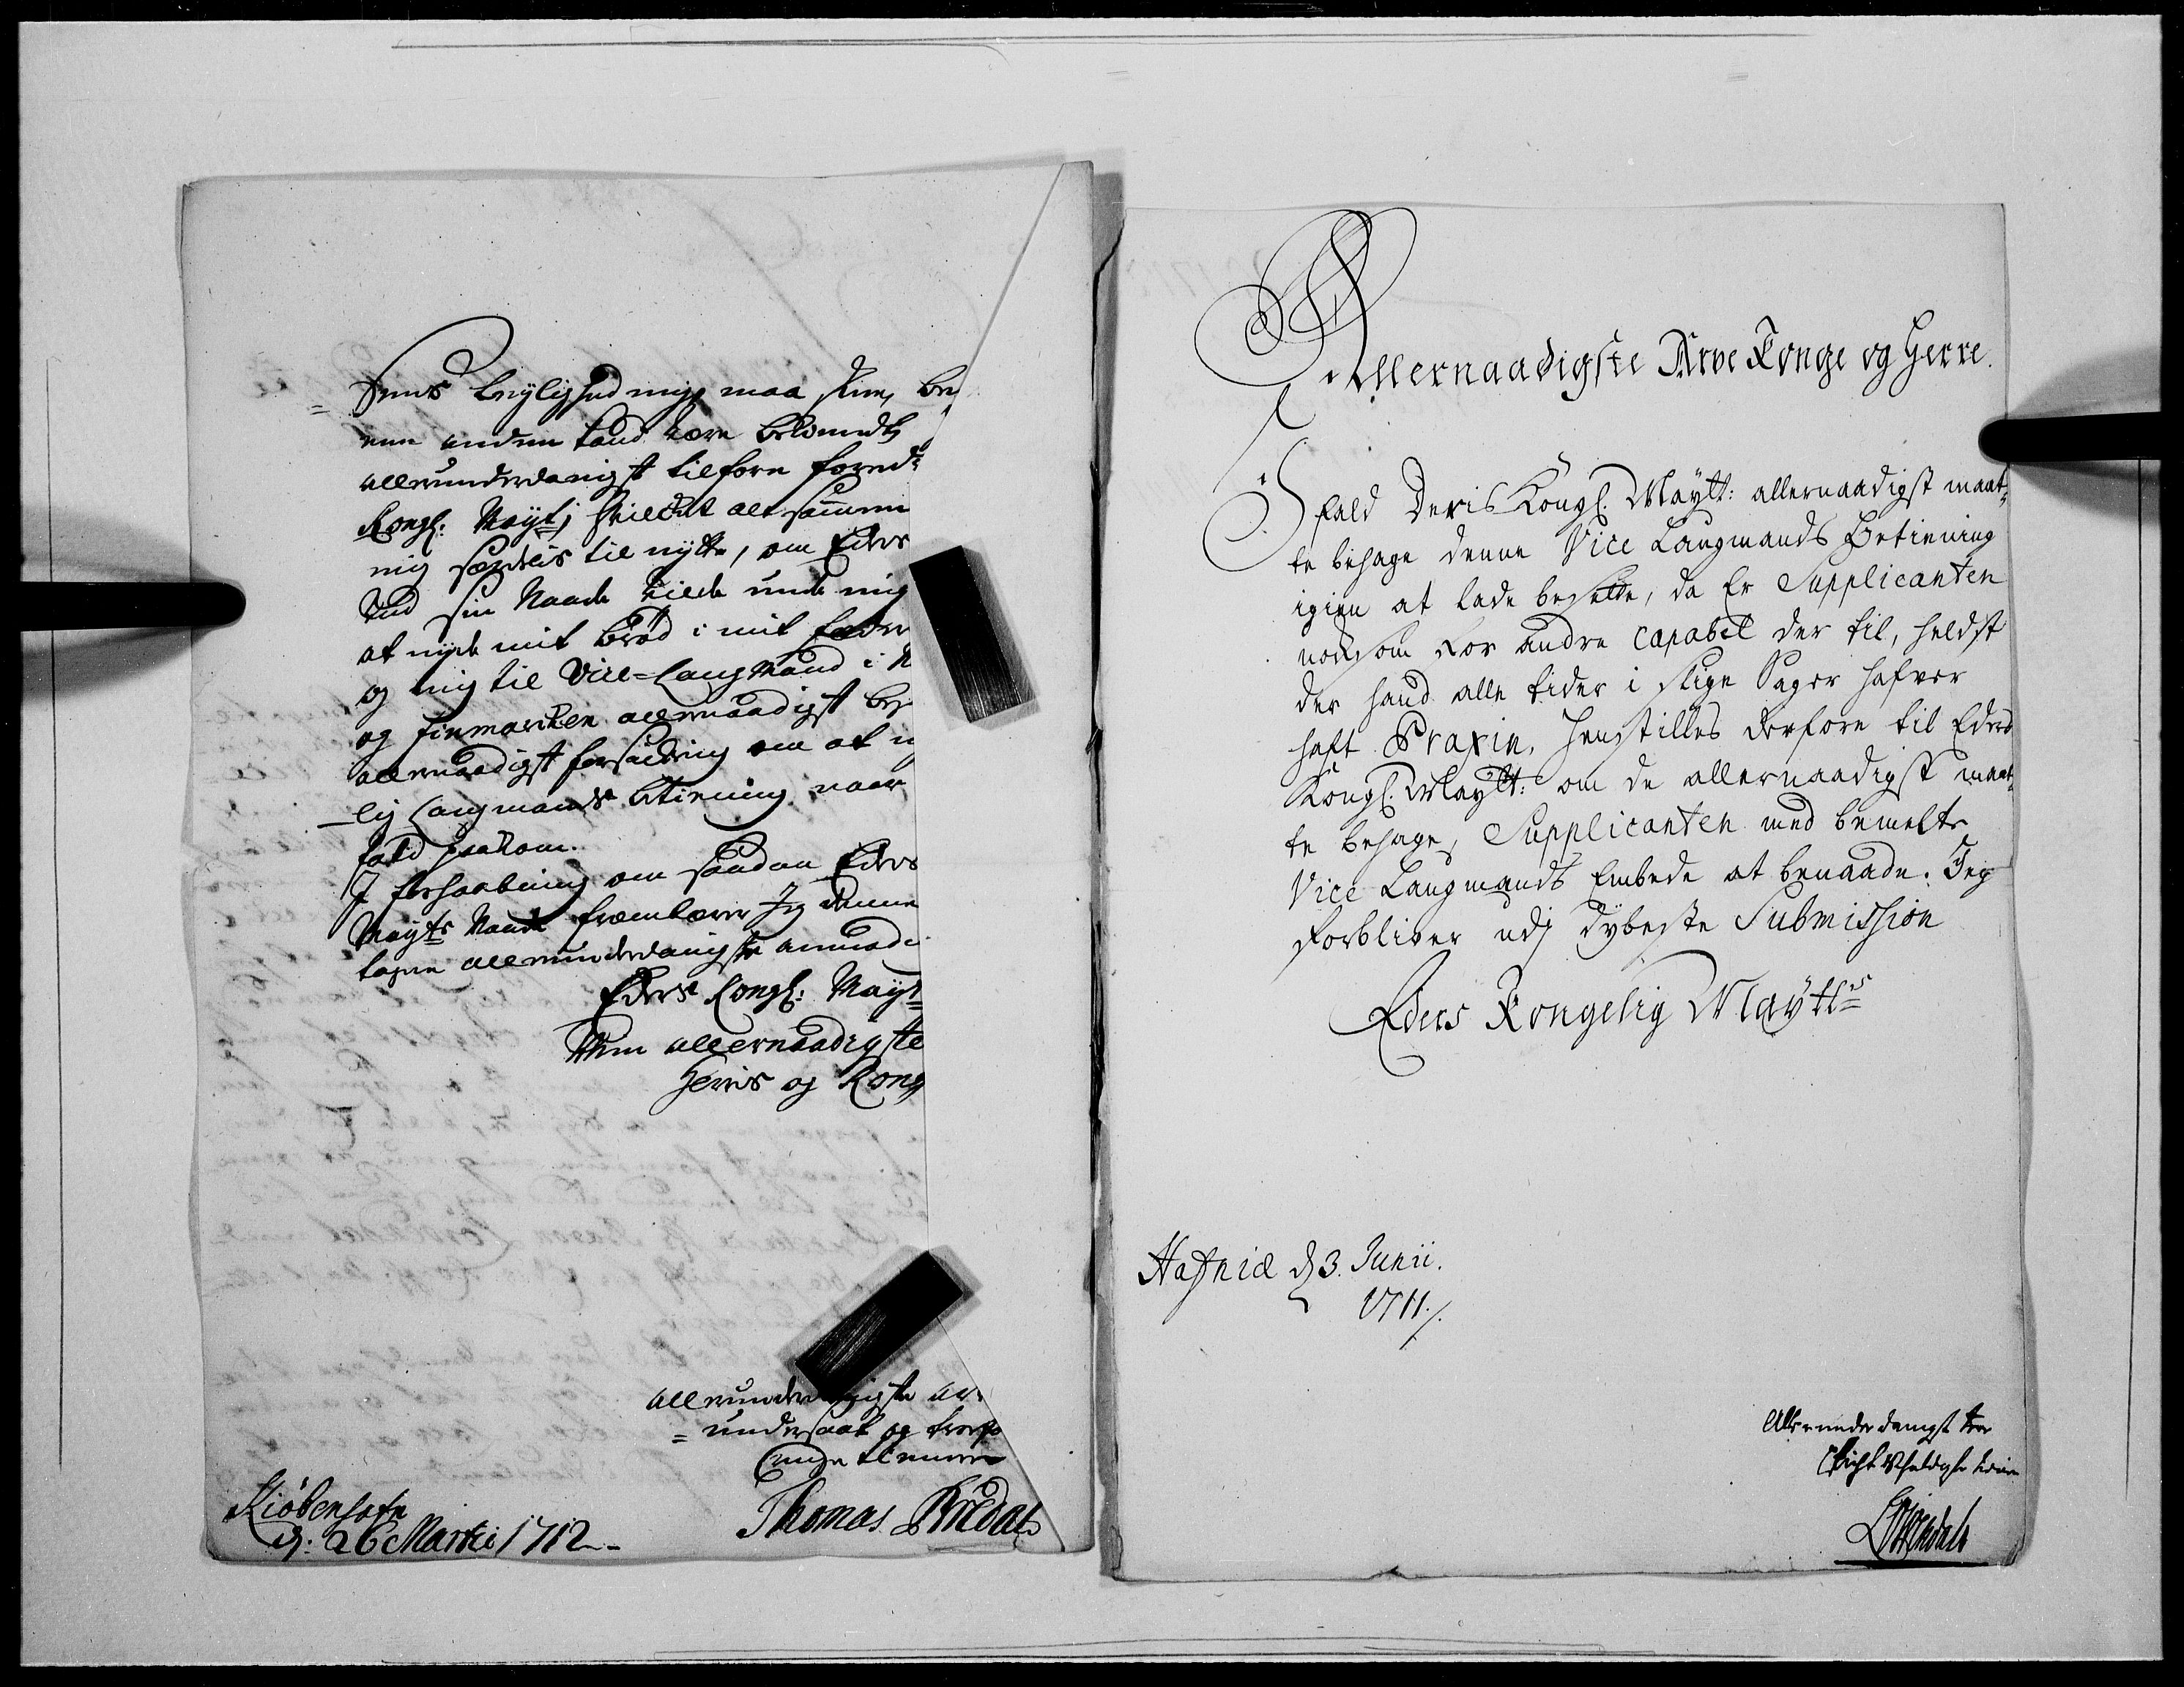 maa
allerunderdanigst tilforn
Kongl: Mayt:
mig til nytte, om Eders
sin Naade vilde unde mig
at nyde mit brød i mit
og mig til Vice-Laugmand i N
og Finmarcken allernaadigst
allernaadigst forsickring om at
lig Laugmands betiening naar
I forhaabning om saadan Eders
Mayts Naade Jeg denne
allerunderdanigste
Eders Kongl: Mayt
Min allernaadigste
Herris og Kong
allerunderdanigste
undersaat og
tienner
Thomas Bredal
Kiøbenhafn
d: 26 Martii 1712
Allernaadigste Arve Konge og Herre.
Ifald Deris Kongl. Maytt: allernaadigst maat-
te behage denne Vice Laugmands Betiening
igien at lade besette, da Er Supplicanten
nogsom for andre capabel der til, heldst
der hand alle tider i slige Sager hafver
haft Praxin, henstilles derfore til Eders
Kongl. Maytt: om de allernaadigst maat-
te behage, Supplicanten med bemelte
Vice Laugmands Embede at benaade. Jeg
forbliver udj dybeste Submission
Eders Kongelig Maytts
Hafniæ d 3. Junii.
1711./.
Allerunderdanigst troe
Pligtskyldigste tiener
Løvendahl